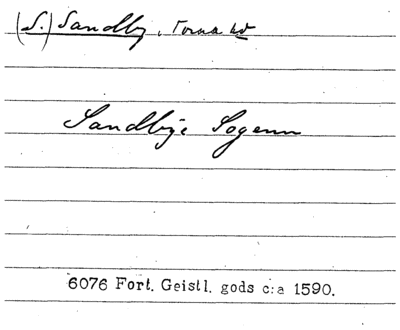 (S.) Sandby, Torna hd
Sandbye Sogenn
6076 Fort. Geistl. gods c:a 1590.